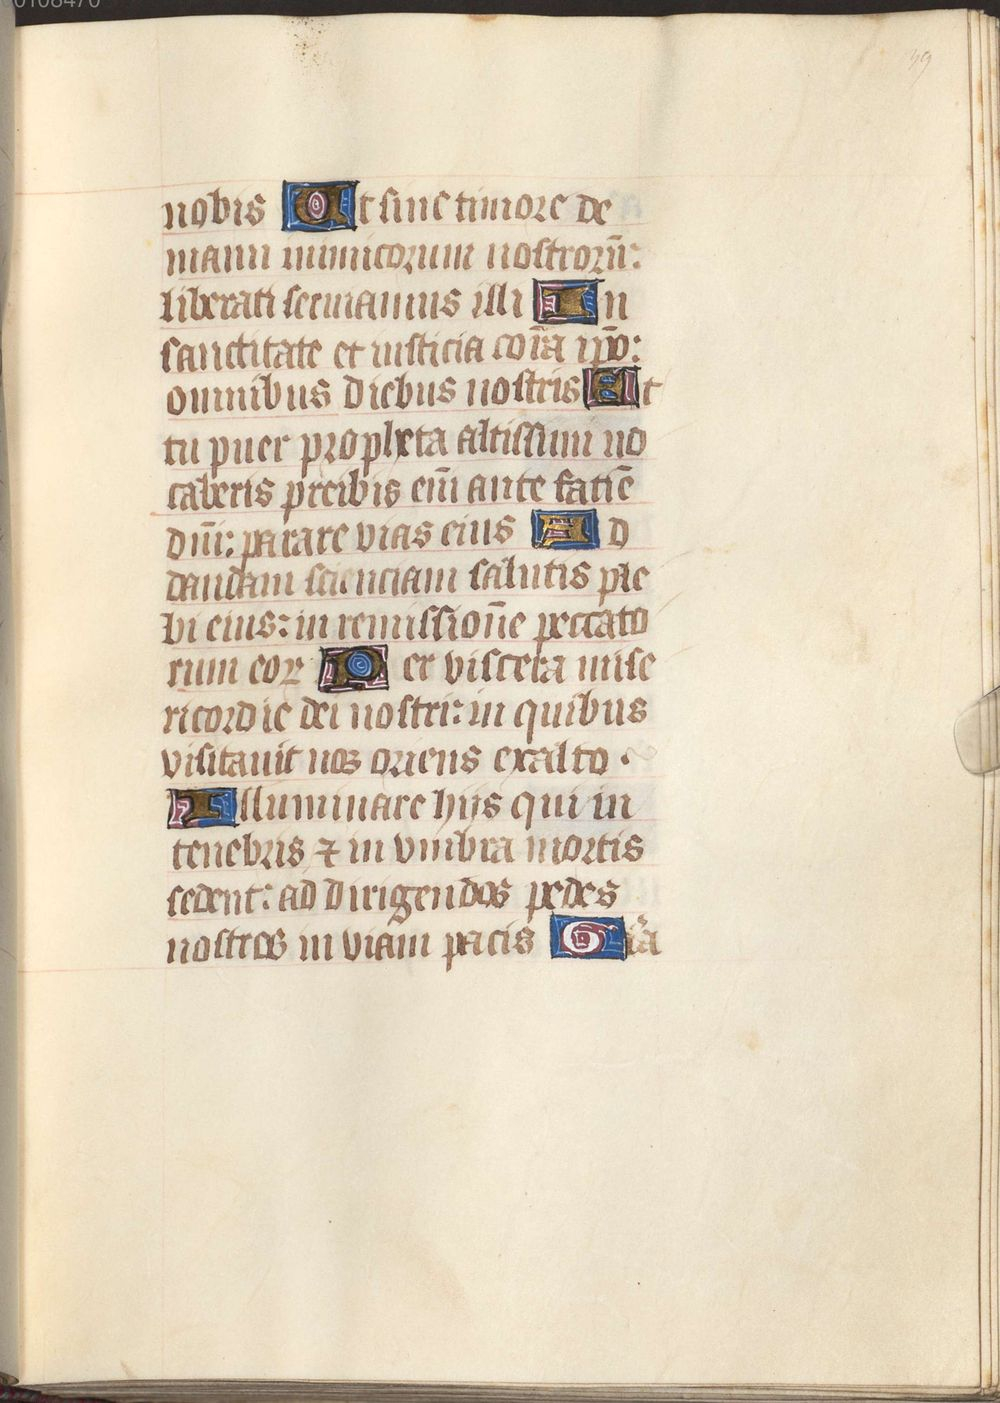 00108470
39
nobis Ut sine timore de
manu inimicorum nostrorū:
liberati seruiamus illi In
sanctitate et iusticia corā ipō:
omnibus diebus nostris Et
tu puer propheta altissimi uo
caberis preibis em̄ ante fatiē
dn̄i: parare vias eius Ad
dandam scienciam salutis ple
bi eius: in remissionē peccato
rum eoꝝ Per viscera mise
ricordie dei nostri: in quibus
visitauit nos oriens exalto ·
Illuminare hijs qui in
tenebris ⁊ in vmbra mortis
sedent: ad dirigendos pedes
nostros in viam pacis Gl̄ia